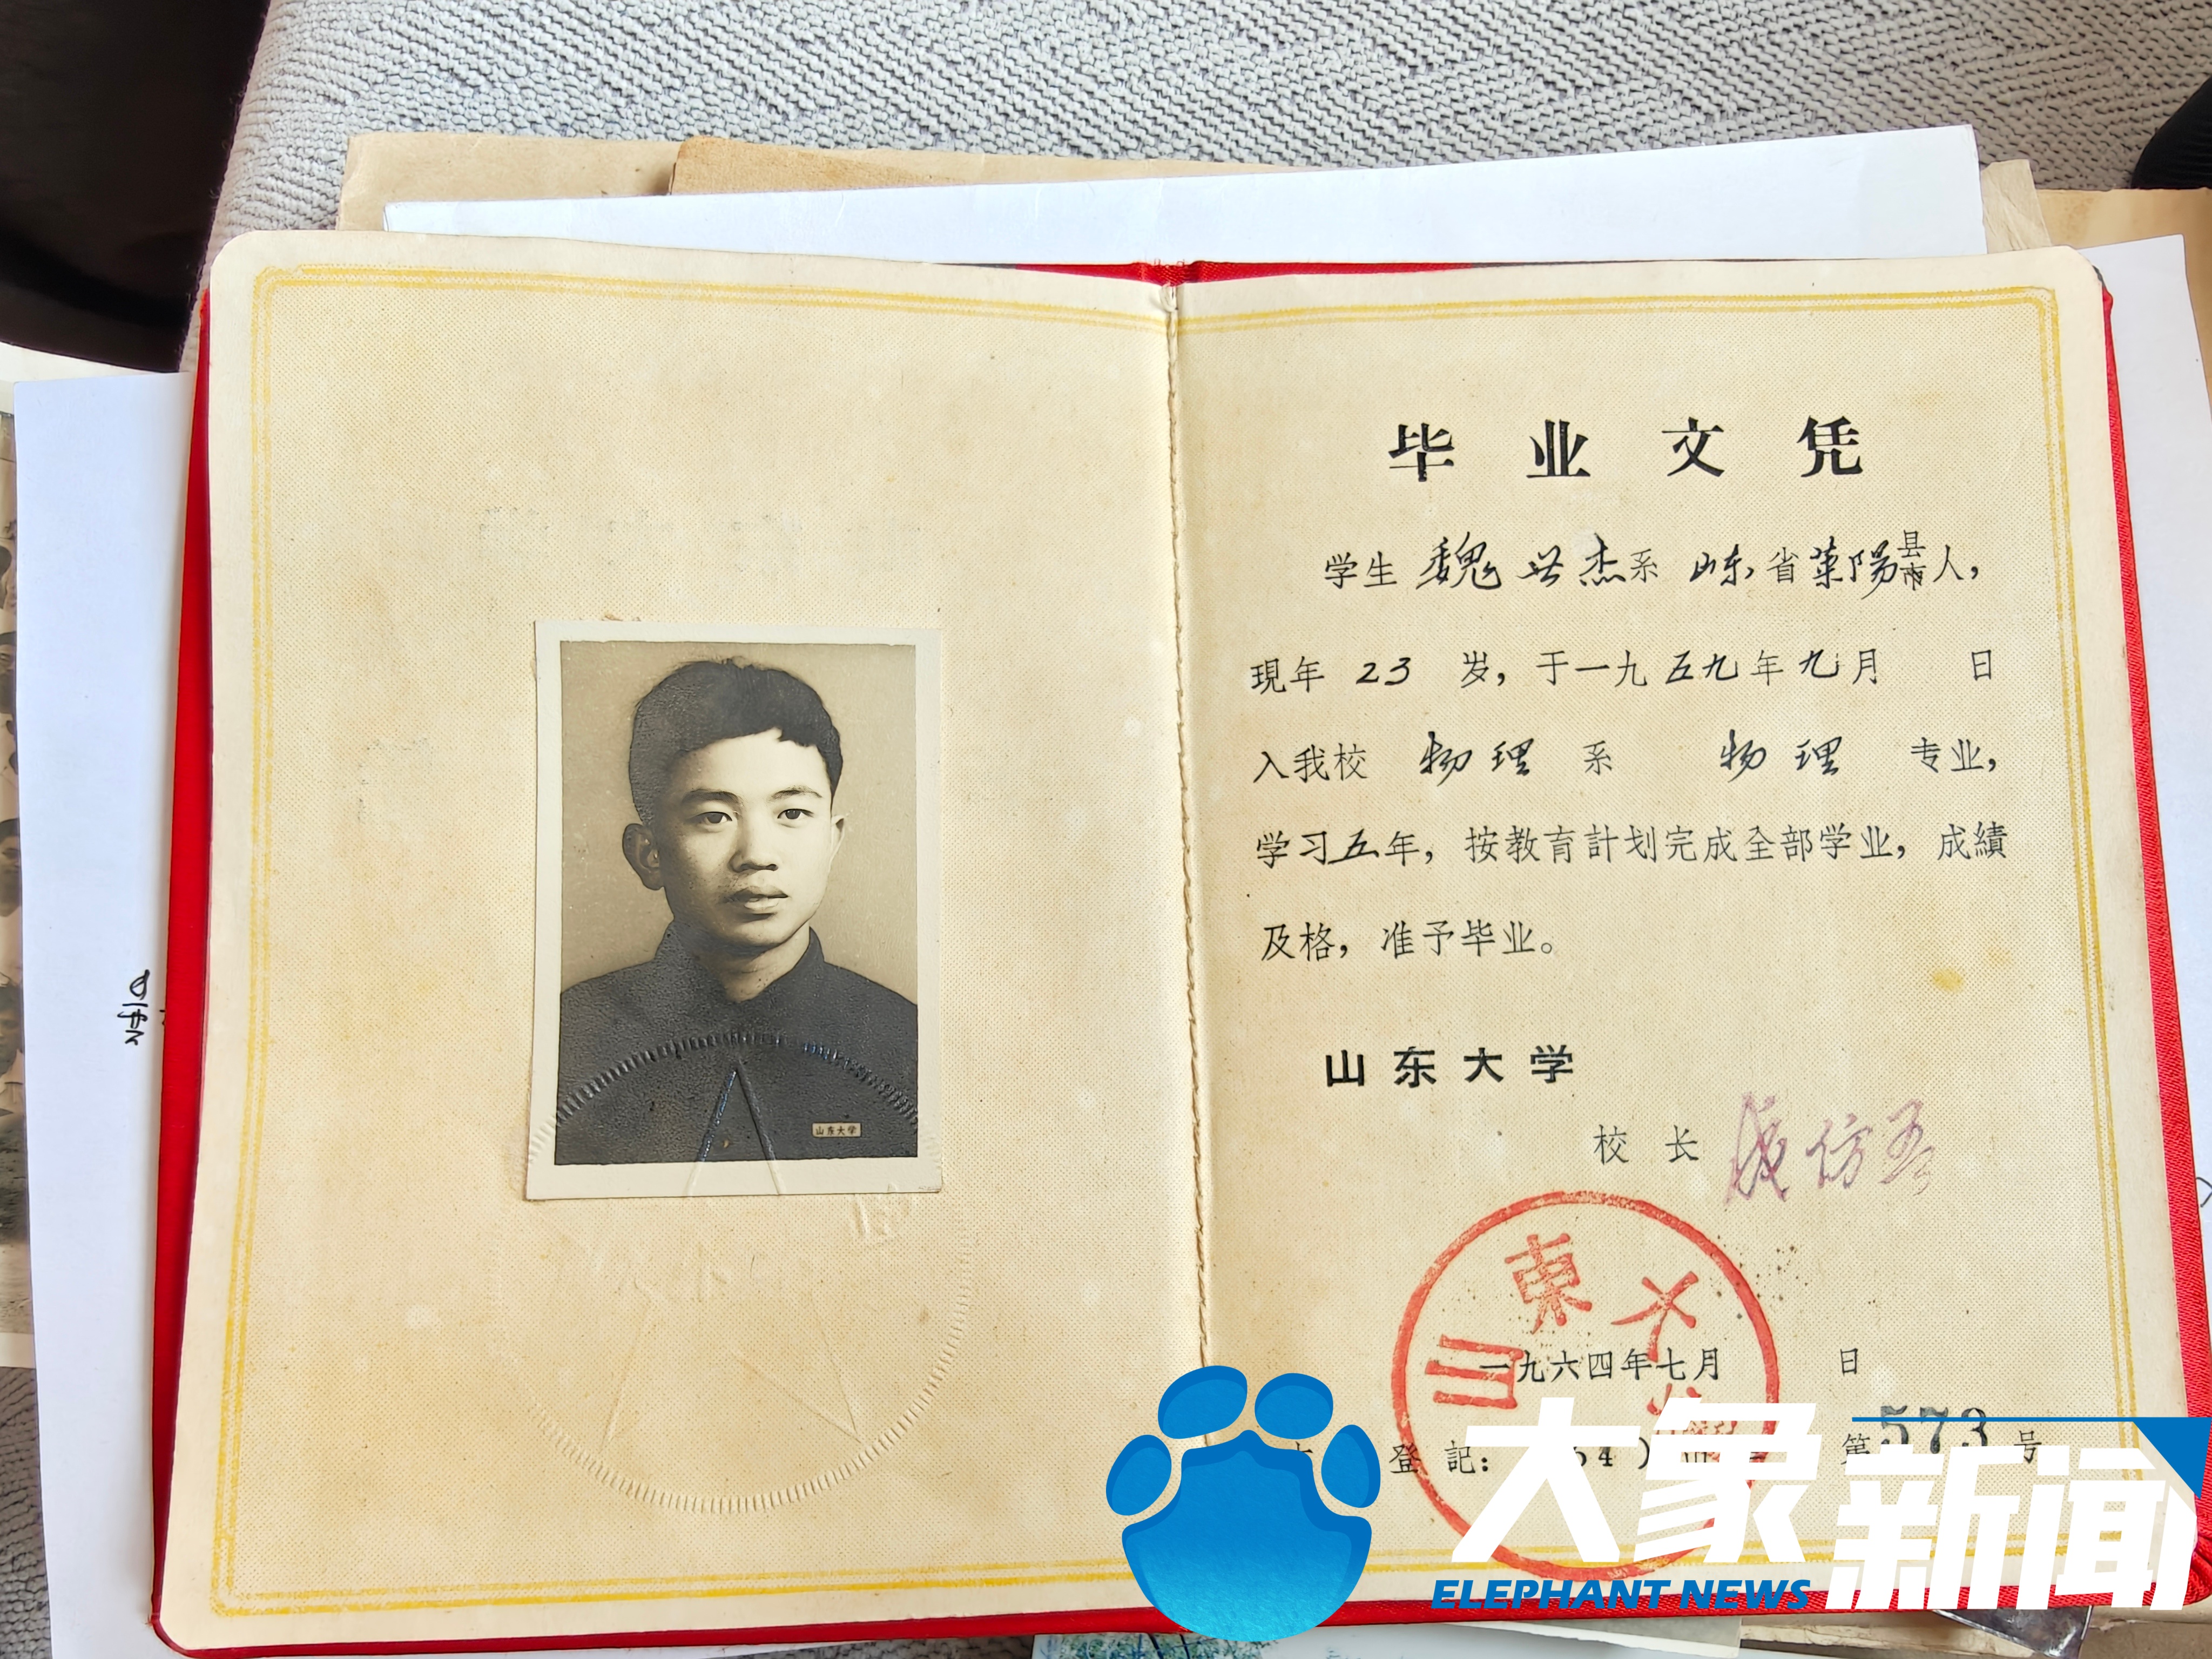 毕业文凭
学生 魏兴杰系 山东省莱阳县市人，
現年 23 岁，于一九五九年九月 日
入我校 物理 系 物理 专业，
学习五年，按教育計划完成全部学业，成績
及格，准予毕业。
山东大学
校长 成仿吾
山東大学
一九六四年七月 日
登記： 64) 第573号
山东大学
大象新闻
ELEPHANT NEWS